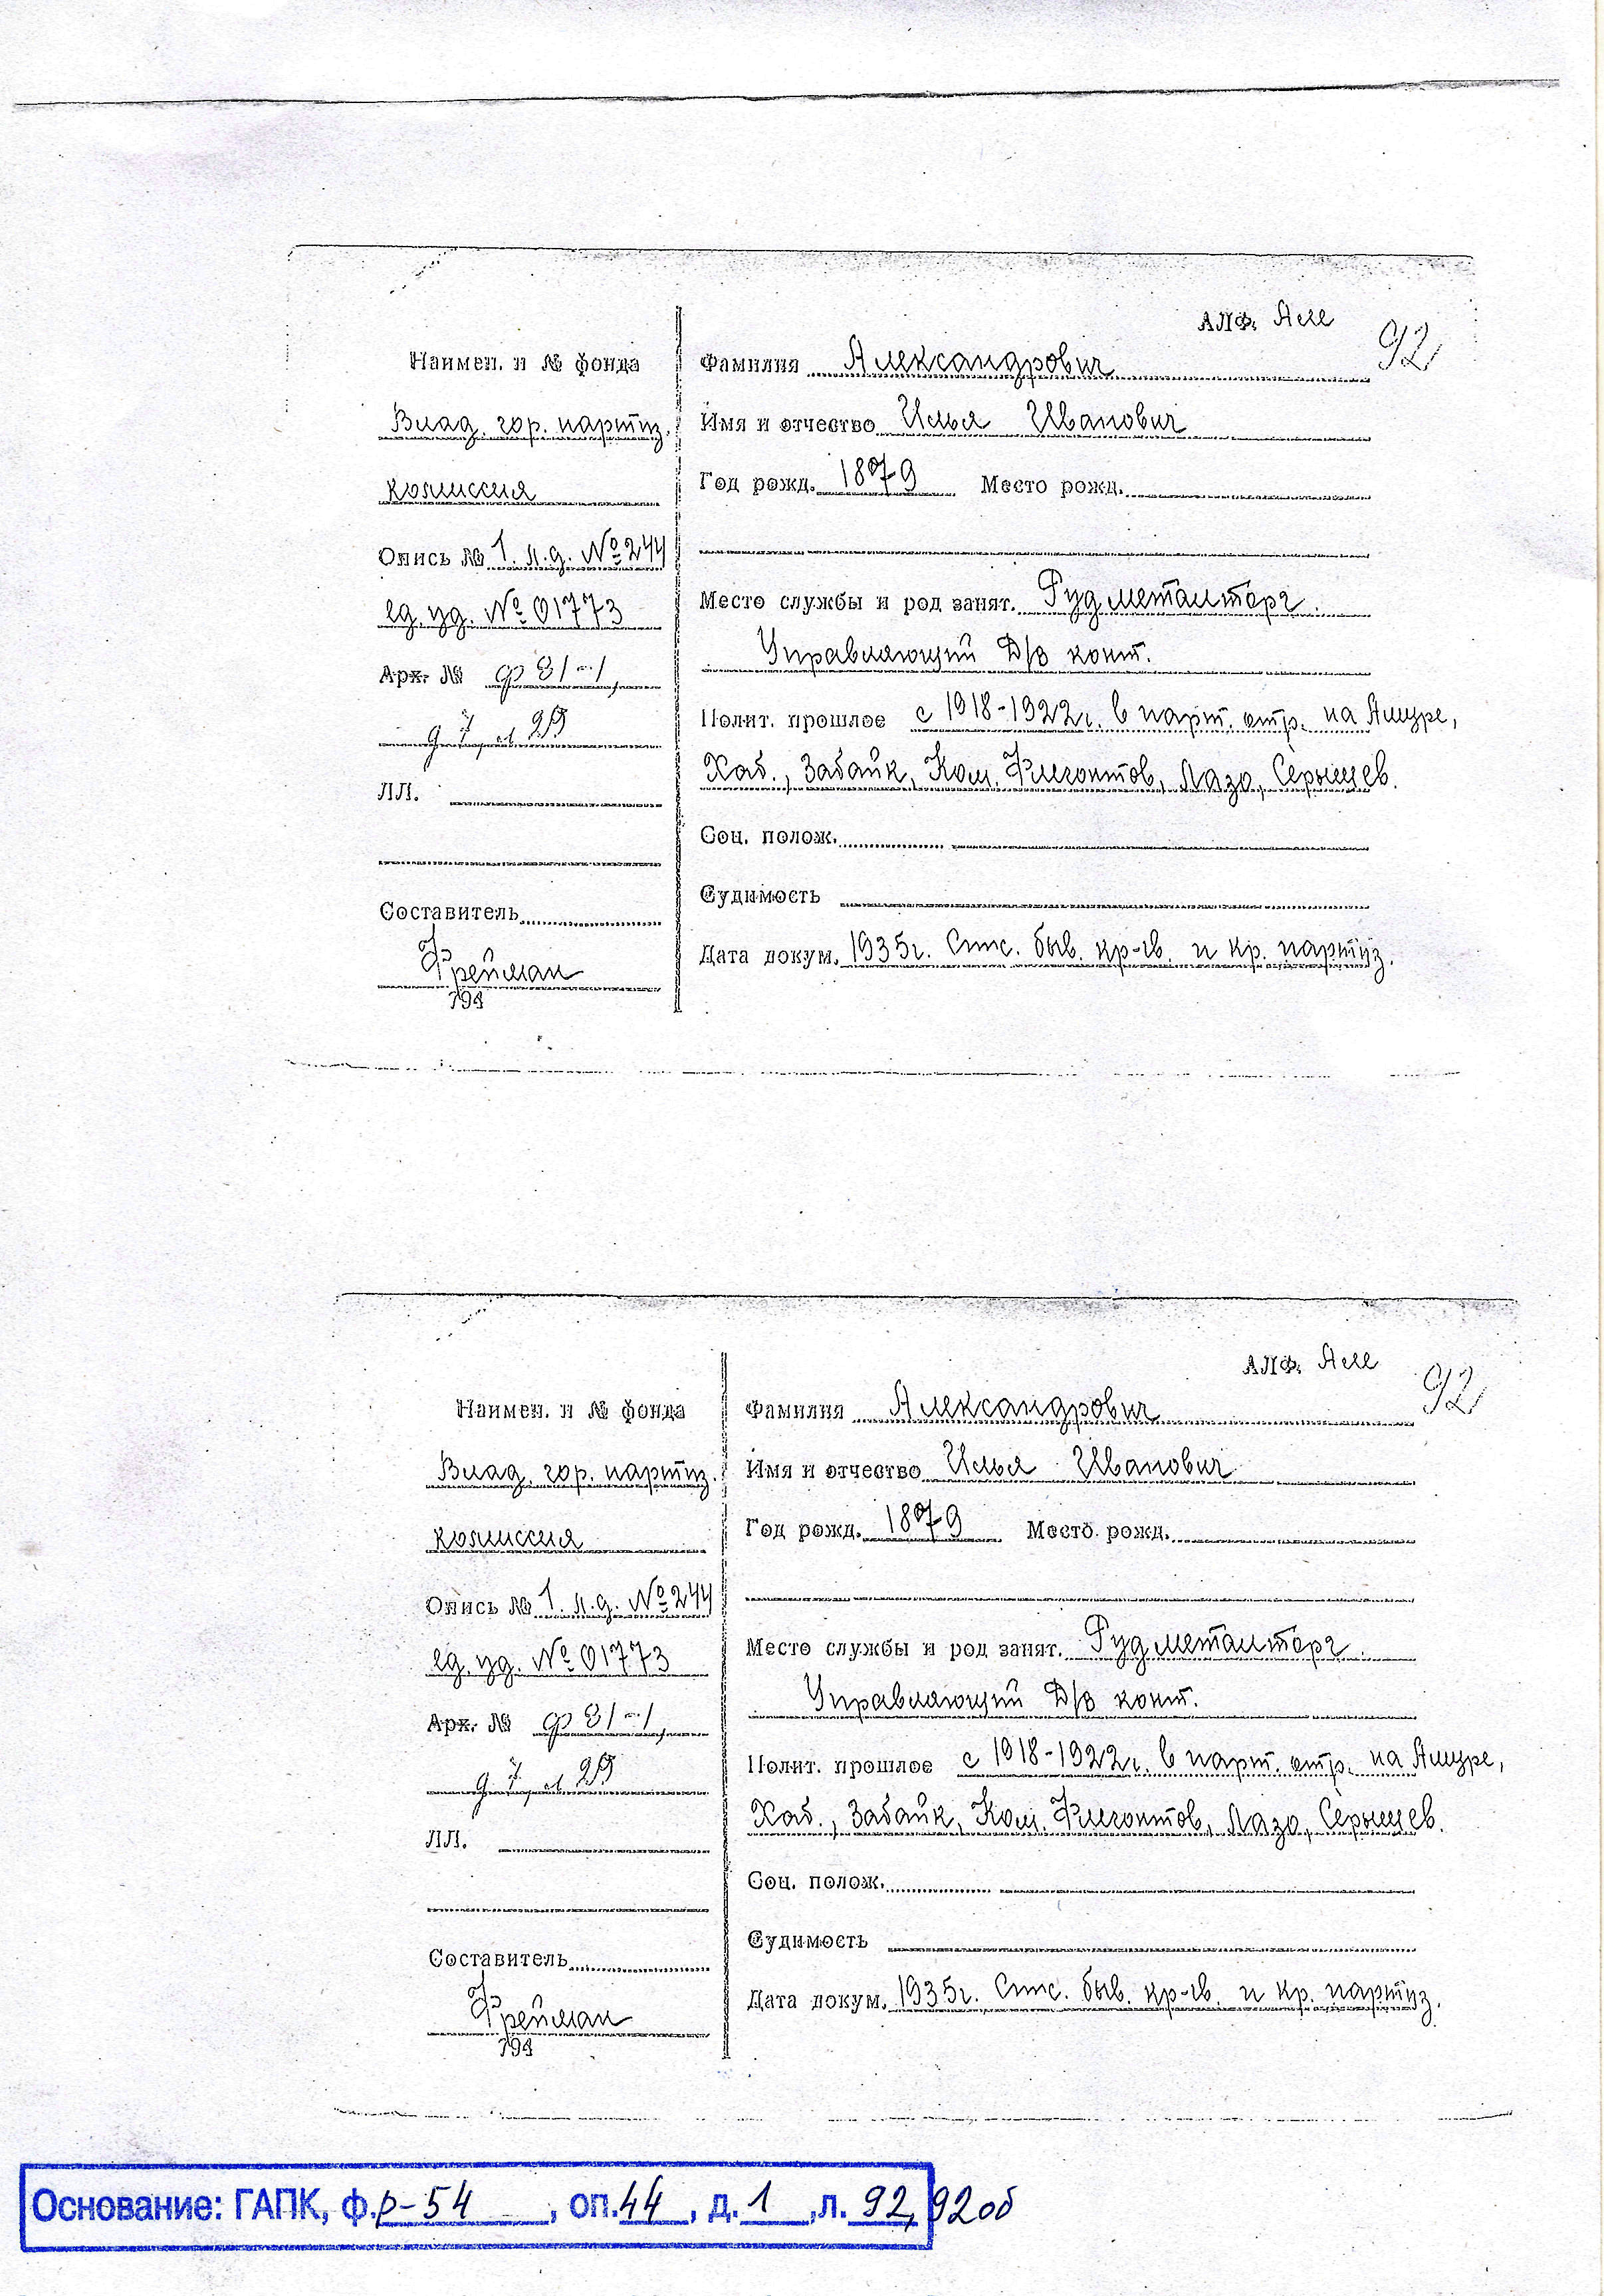 АЛФ. Але
92
Наимен. и № фонда
Влад. гор. партиз.
комиссия
Опись № 1. л.д. № 244
ед. уд. № 01773
Арх. № ф 31-1,
д 7, л 29
ЛЛ.
Составитель
Фрейман
794
Фамилия Александрович
Имя и отчество Илья Иванович
Год рожд. 1879 Место рожд.
Место службы и род занят. Рудметалторг.
Управляющий Д/В конт.
Полит. прошлое с 1918-1922г. в парт. отр. на Амуре,
Хаб., Забайк, Ком. Флегонтов, Лазо, Серышев.
Соц. полож.
Судимость
Дата докум. 1935г. Спис. быв. кр-гв. и кр. партиз.
АЛФ. Але
92
Наимен. и № фонда
Влад. гор. партиз.
комиссия
Опись № 1. л.д. № 244
ед. уд. № 01773
Арх. № ф 31-1,
д 7, л 29
ЛЛ.
Составитель
Фрейман
794
Фамилия Александрович
Имя и отчество Илья Иванович
Год рожд. 1879 Место рожд.
Место службы и род занят. Рудметалторг.
Управляющий Д/В конт.
Полит. прошлое с 1918-1922г. в парт. отр. на Амуре,
Хаб., Забайк, Ком. Флегонтов, Лазо, Серышев.
Соц. полож.
Судимость
Дата докум. 1935г. Спис. быв. кр-гв. и кр. партиз.
Основание: ГАПК, ф.р-54, оп.44, д.1, л. 92, 92об